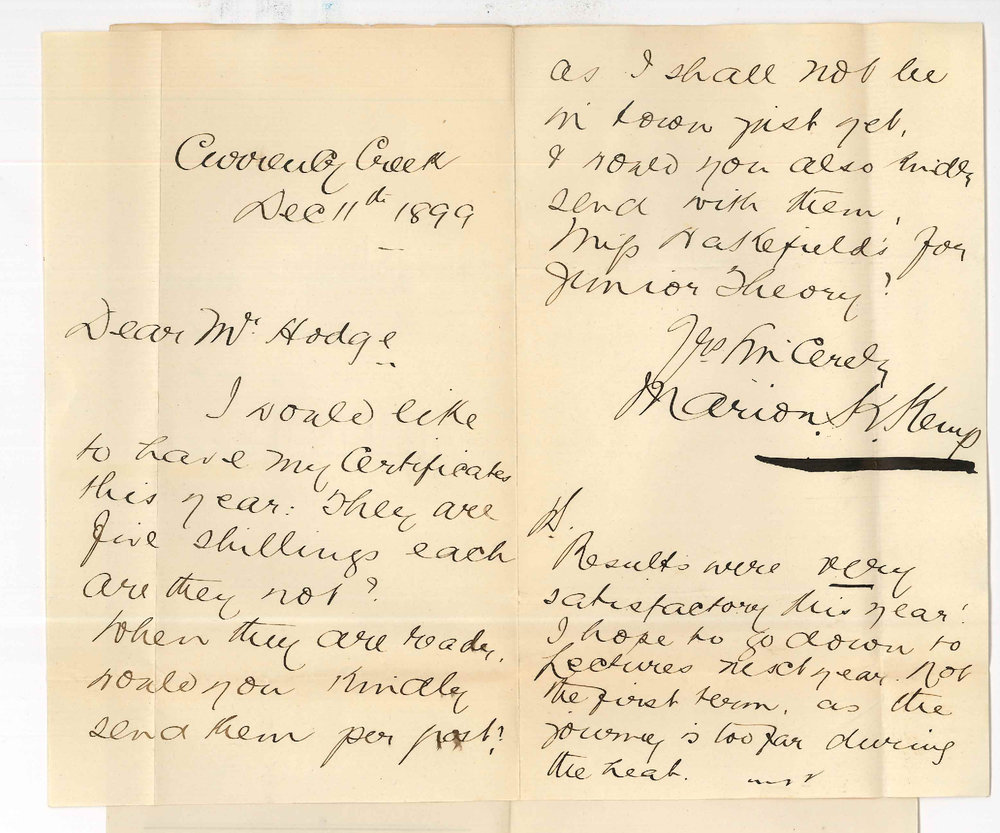 Currency Creek
Dec 11th 1899
Dear Mr. Hodge
I would like
to have my Certificates
this year: They are
five shillings each
are they not?
When they are ready,
would you kindly
send them per post?
as I shall not be
in town just yet,
& would you also kindly
send with them,
Miss Hakefield's for
Junior Theory?
Yrs Sincerely
Marion. K. Kemp
PS.
Results were very
satisfactory this year!
I hope to go down to
Lectures next year. Not
the first term, as the
journey is too far during
the heat.